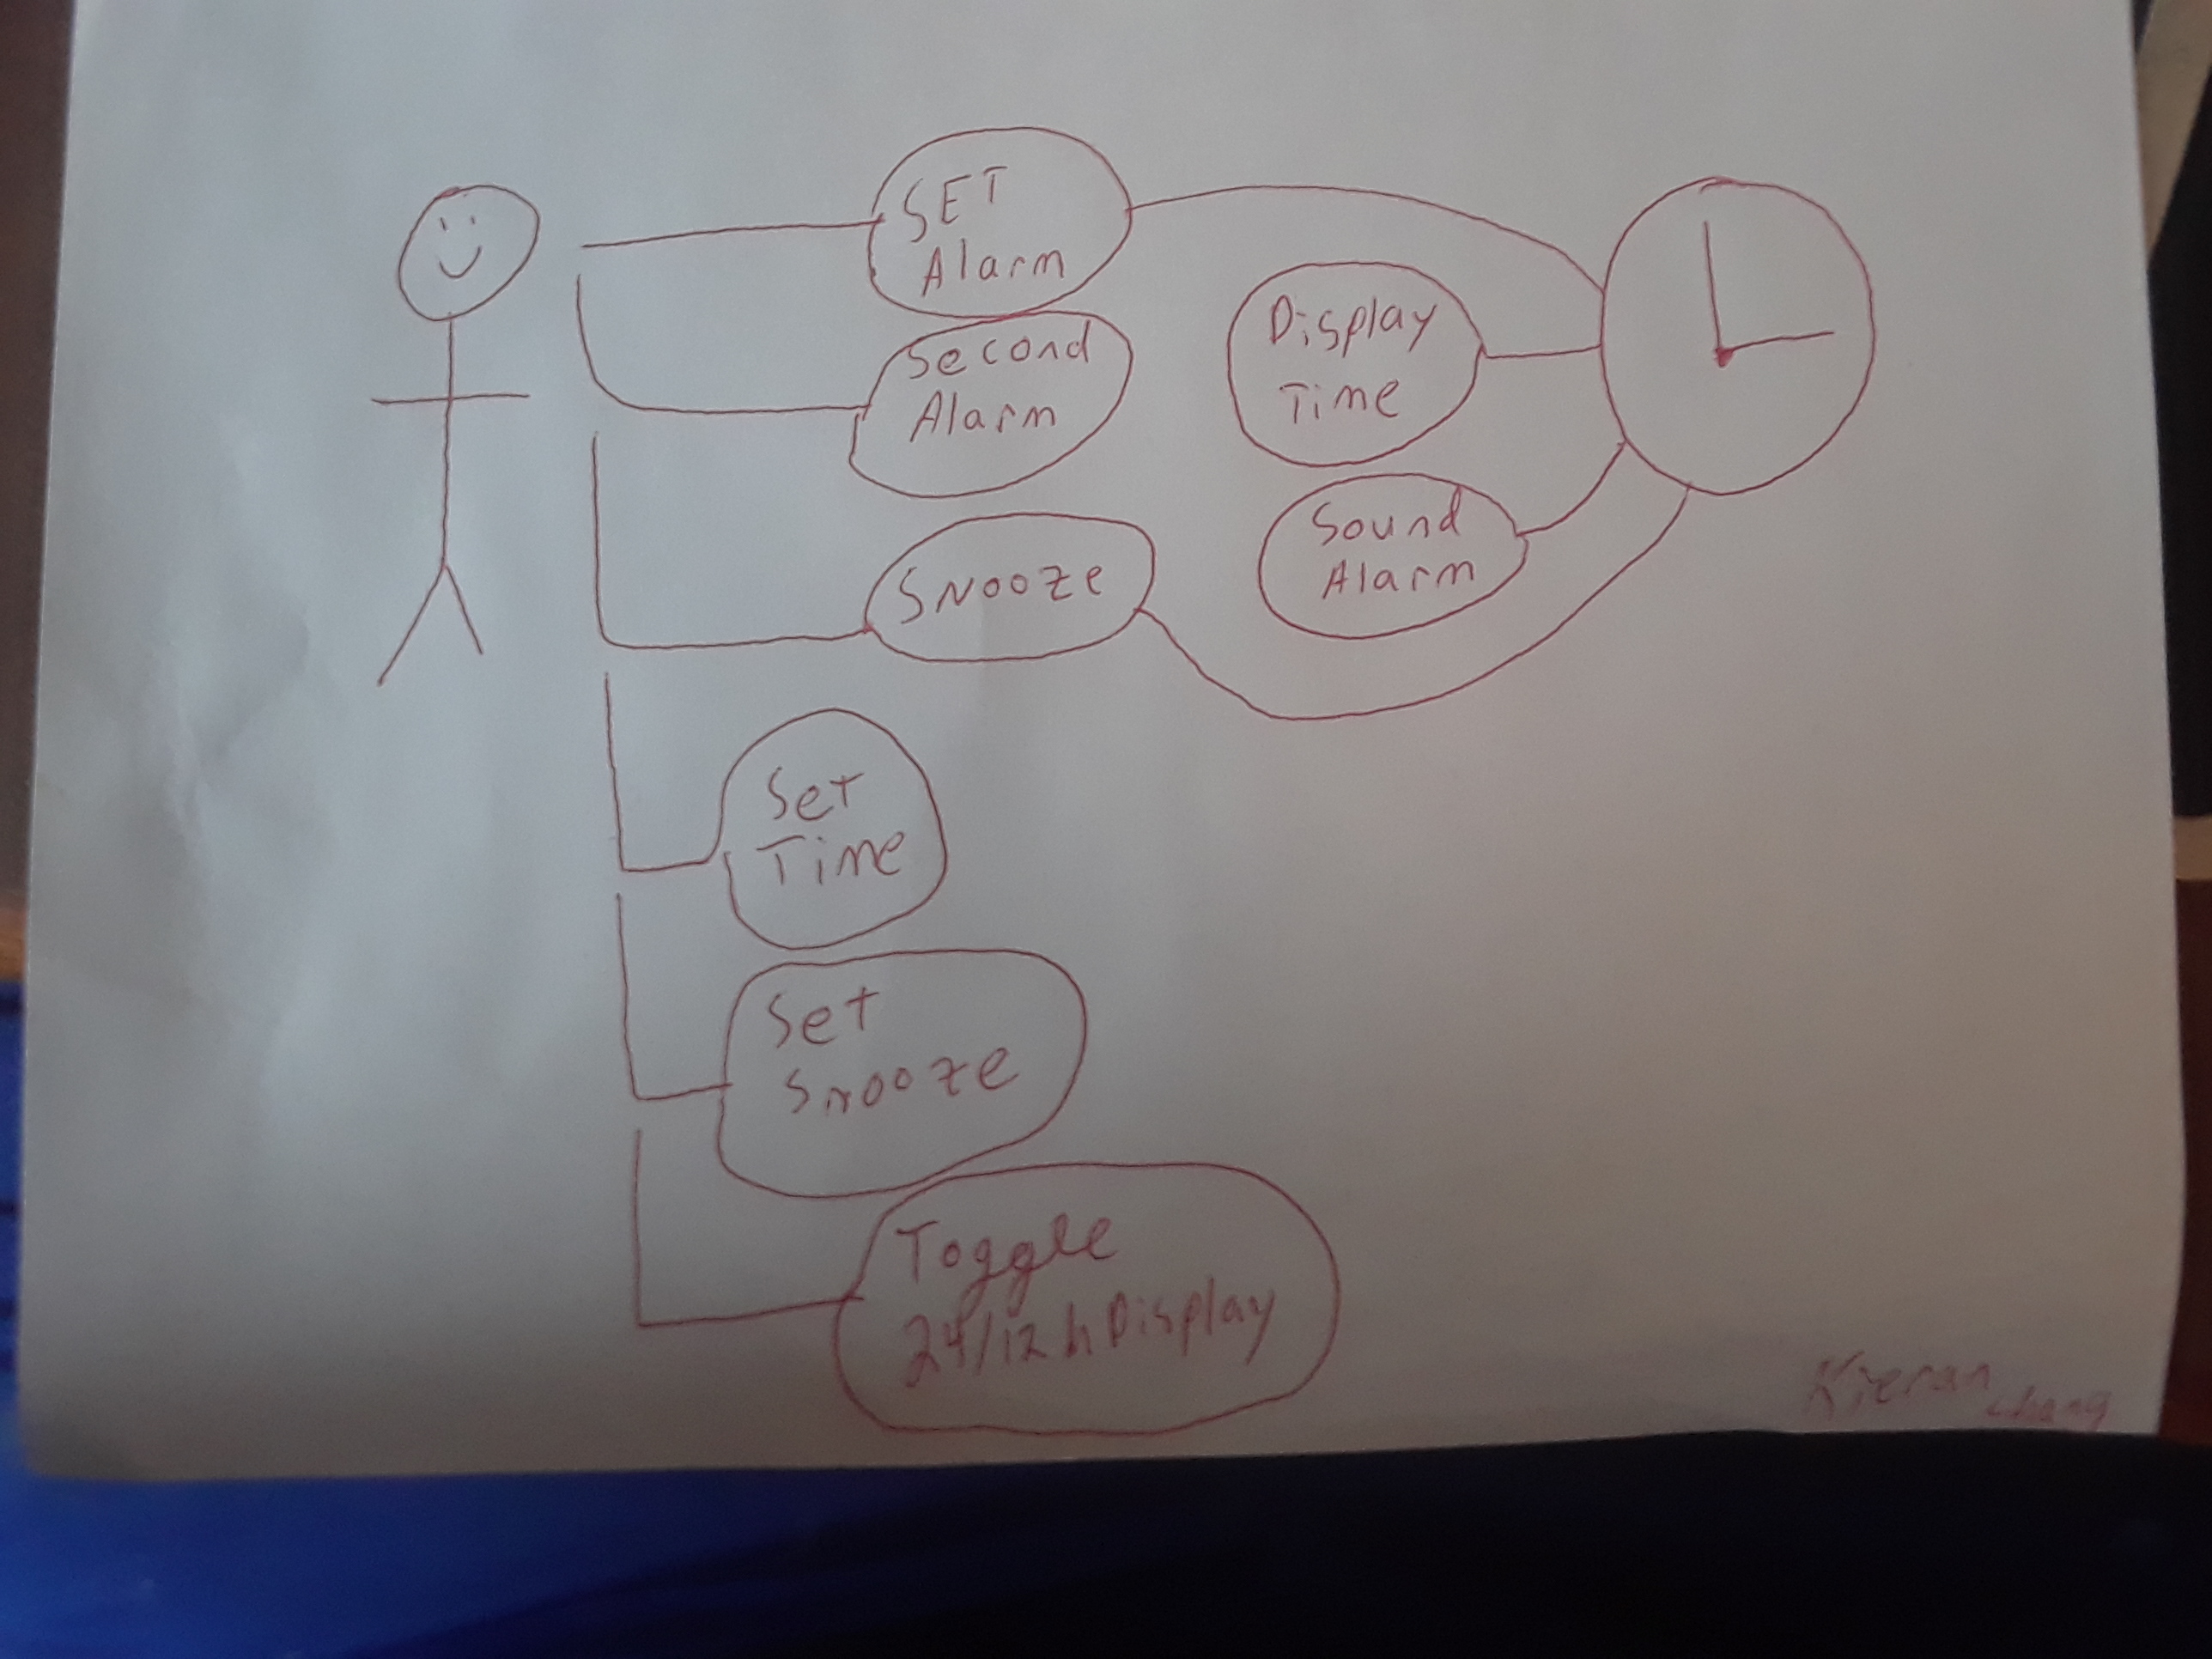 SET
Alarm
Second
Alarm
Display
Time
Sound
Alarm
Snooze
Set
Time
Set
Snooze
Toggle
24/12h Display
Kieran
Chang